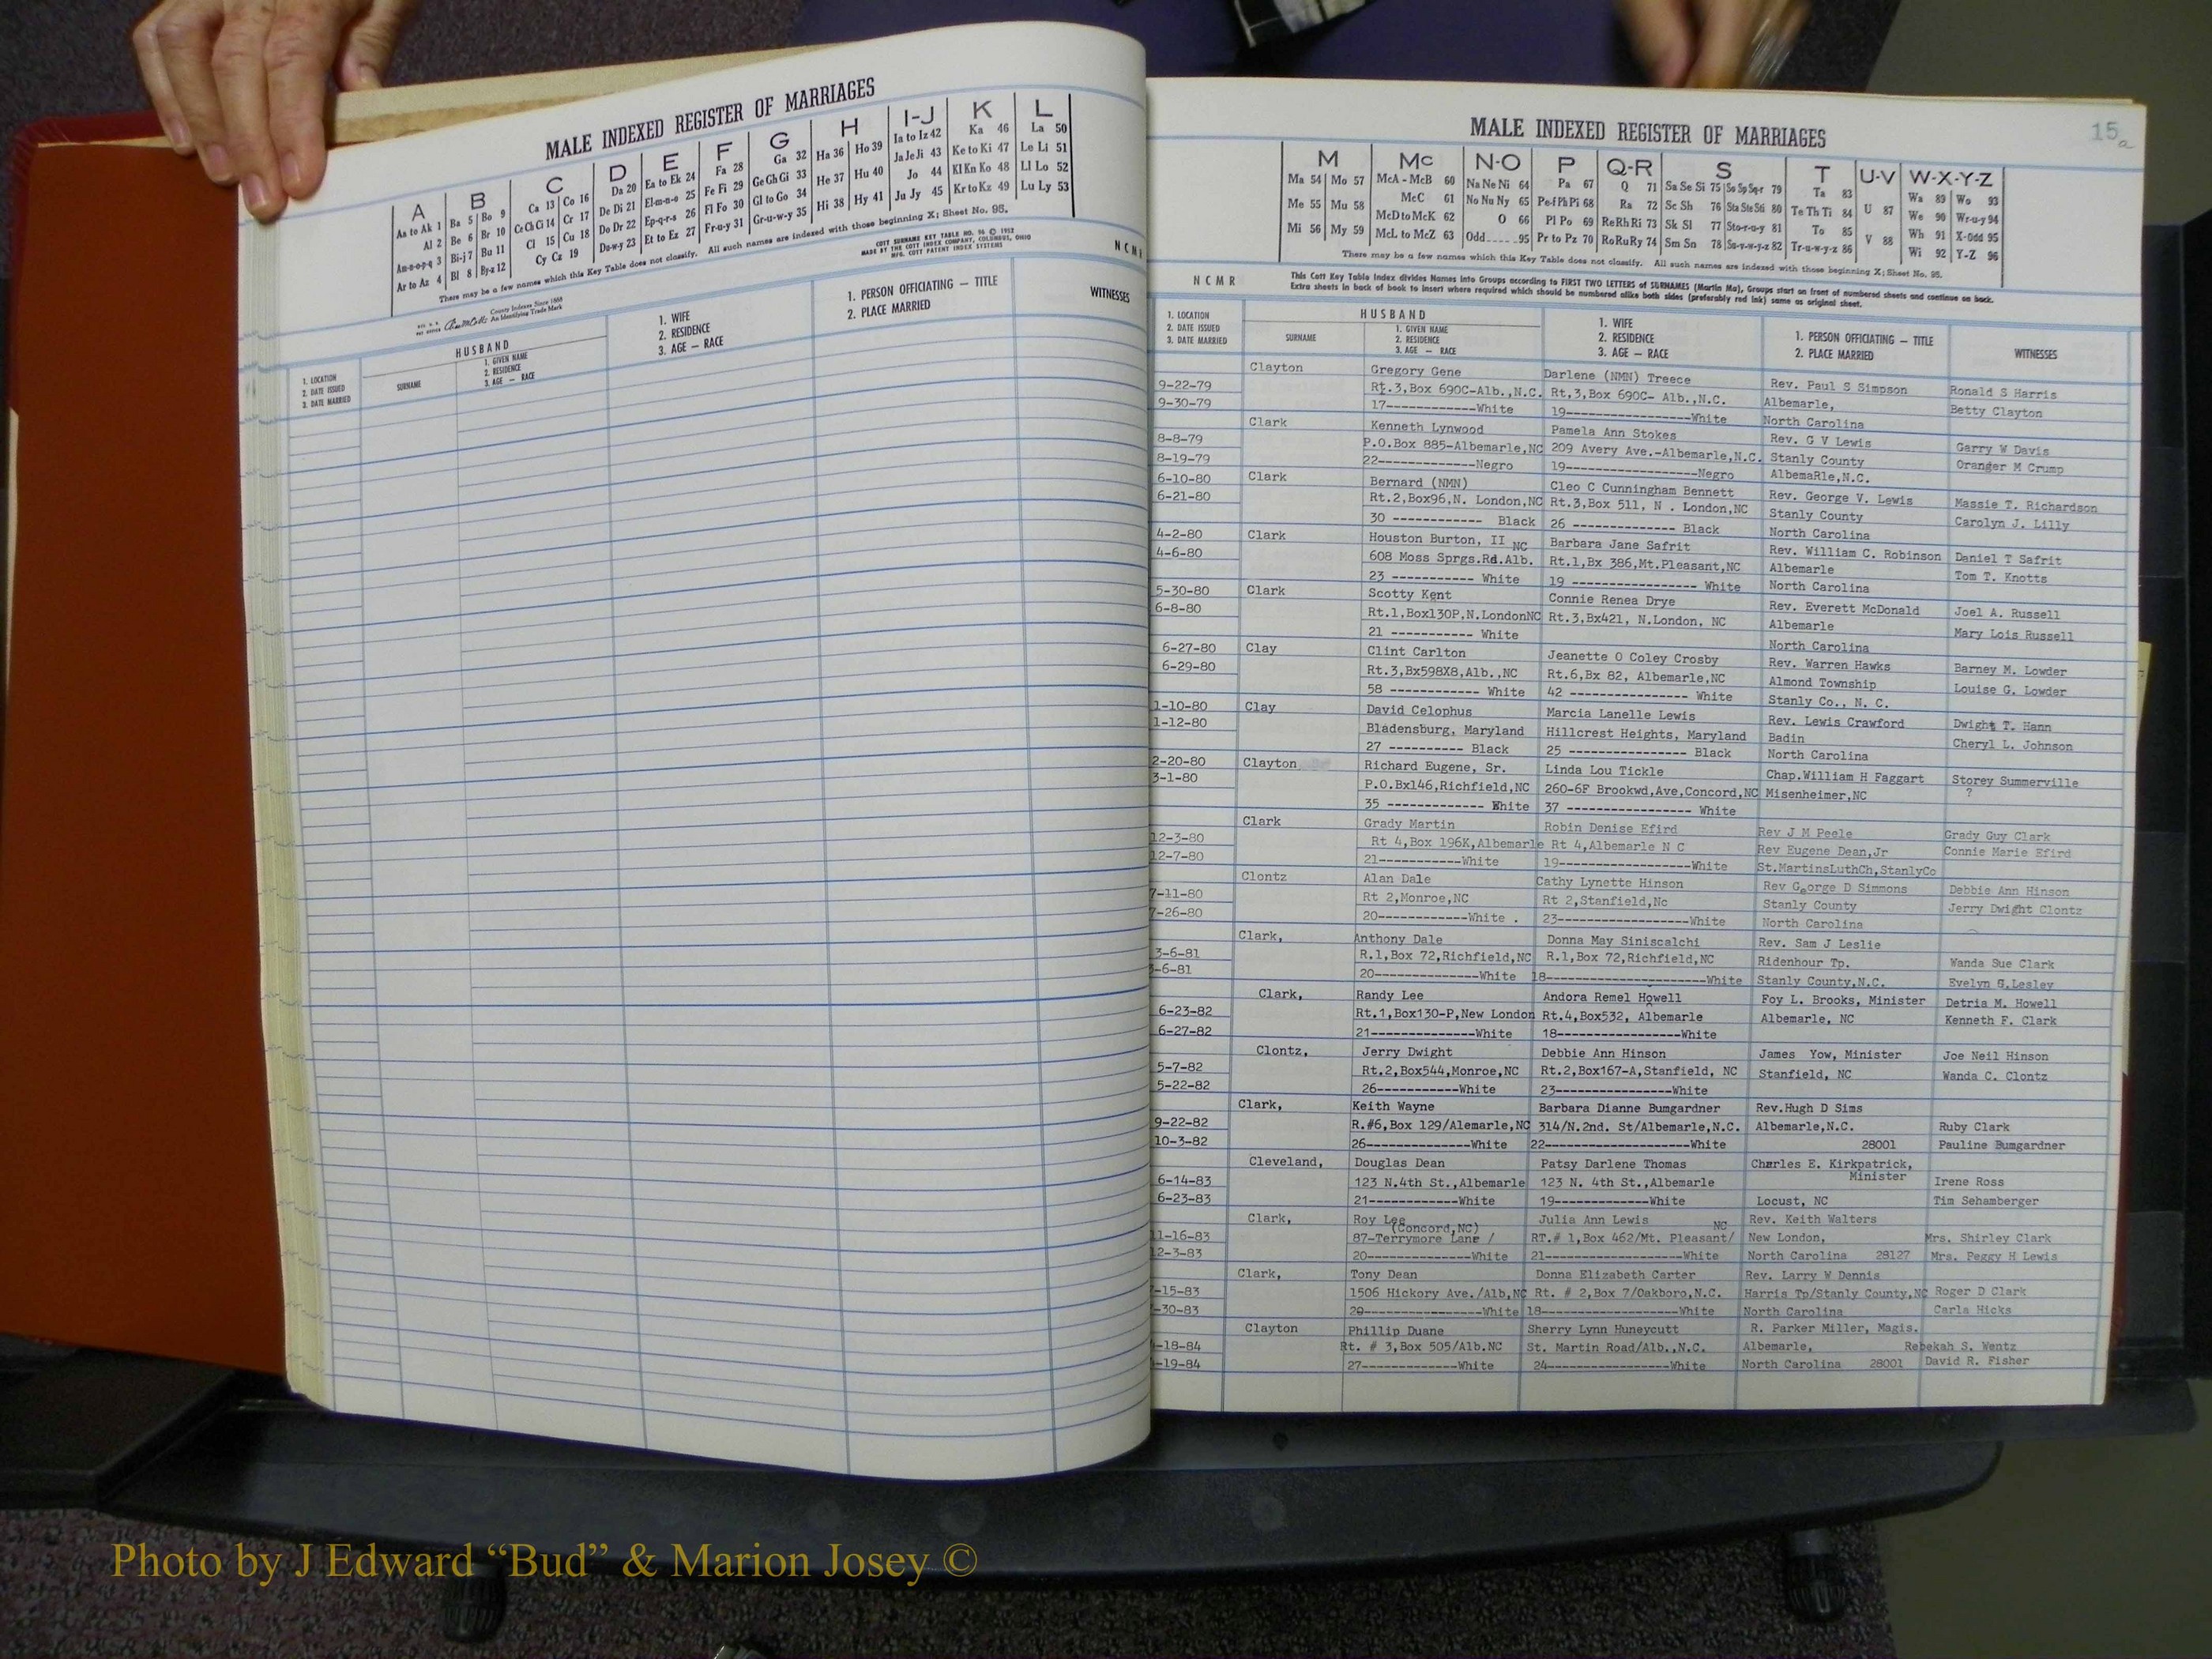 MALE INDEXED REGISTER OF MARRIAGES
A B C D E F G H I-J K L
Aa to Ak 1 Ba 5 Bo 9 Ca 13 Co 16 Da 20 Ea to Ek 24 Fa 28 Ga 32 Ha 36 Ho 39 Ia to Iz 42 Ka 46 La 50
Al 2 Be 6 Br 10 Ce Ch Ci 14 Cr 17 De Di 21 El-m-n-o 25 Fe Fi 29 Ge Gh Gi 33 He 37 Hu 40 Ja Je Ji 43 Ke to Ki 47 Le Li 51
Am-n-o-p-q 3 Bi-j 7 Bu 11 Cl 15 Cu 18 Do Dr 22 Ep-q-r-s 26 Fl Fo 30 Gl to Go 34 Hi 38 Hy 41 Jo 44 Kl Kn Ko 48 Ll Lo 52
Ar to Az 4 Bl 8 By-z 12 Cy Cz 19 Du-w-y 23 Et to Ez 27 Fr-u-y 31 Gr-u-w-y 35 Ju Jy 45 Kr to Kz 49 Lu Ly 53
There may be a few names which this Key Table does not classify. All such names are indexed with those beginning X; Sheet No. 95.
County Indexes Since 1888
An Identifying Trade Mark
COTT SURNAME KEY TABLE NO. 96 © 1952
MADE BY THE COTT INDEX COMPANY, COLUMBUS, OHIO
MFG. COTT PATENT INDEX SYSTEMS
N C M R
1. LOCATION
2. DATE ISSUED
3. DATE MARRIED
HUSBAND
SURNAME
1. GIVEN NAME
2. RESIDENCE
3. AGE — RACE
1. WIFE
2. RESIDENCE
3. AGE — RACE
1. PERSON OFFICIATING — TITLE
2. PLACE MARRIED
WITNESSES
MALE INDEXED REGISTER OF MARRIAGES
15a
M Mc N-O P Q-R S T U-V W-X-Y-Z
Ma 54 Mo 57 McA - McB 60 Na Ne Ni 64 Pa 67 Q 71 Sa Se Si 75 So Sp Sq-r 79 Ta 83 U 87 Wa 89 Wo 93
Me 55 Mu 58 McC 61 No Nu Ny 65 Pe-f Ph Pi 68 Ra 72 Sc Sh 76 Sta Ste Sti 80 Te Th Ti 84 We 90 Wr-u-y 94
Mi 56 My 59 McD to McK 62 O 66 Pl Po 69 Re Rh Ri 73 Sk Sl 77 Sto-r-u-y 81 To 85 V 88 Wh 91 X-Odd 95
McL to McZ 63 Odd 95 Pr to Pz 70 Ro Ru Ry 74 Sm Sn 78 Su-v-w-y-z 82 Tr-u-w-y-z 86 Wi 92 Y-Z 96
There may be a few names which this Key Table does not classify. All such names are indexed with those beginning X; Sheet No. 95.
N C M R
This Cott Key Table Index divides Names into Groups according to FIRST TWO LETTERS of SURNAMES (Martin Ma), Groups start on front of numbered sheets and continue on back.
Extra sheets in back of book to insert where required which should be numbered alike both sides (preferably red ink) same as original sheet.
1. LOCATION
2. DATE ISSUED
3. DATE MARRIED
HUSBAND
SURNAME
1. GIVEN NAME
2. RESIDENCE
3. AGE — RACE
1. WIFE
2. RESIDENCE
3. AGE — RACE
1. PERSON OFFICIATING — TITLE
2. PLACE MARRIED
WITNESSES
Clayton Gregory Gene Darlene (NMN) Treece Rev. Paul S Simpson Ronald S Harris
9-22-79 Rt.3,Box 690C-Alb.,N.C. Rt,3,Box 690C- Alb.,N.C. Albemarle, Betty Clayton
9-30-79 17------------White 19---------------White North Carolina
Clark Kenneth Lynwood Pamela Ann Stokes Rev. G V Lewis Garry W Davis
8-8-79 P.O.Box 885-Albemarle,NC 209 Avery Ave.-Albemarle,N.C. Stanly County Oranger M Crump
8-19-79 22-------------Negro 19-----------------Negro AlbemaRle,N.C.
6-10-80 Clark Bernard (NMN) Cleo C Cunningham Bennett Rev. George V. Lewis Massie T. Richardson
6-21-80 Rt.2,Box96,N. London,NC Rt.3,Box 511, N . London,NC Stanly County Carolyn J. Lilly
30 ------------ Black 26 -------------- Black North Carolina
4-2-80 Clark Houston Burton, II NC Barbara Jane Safrit Rev. William C. Robinson Daniel T Safrit
4-6-80 608 Moss Sprgs.Rd.Alb. Rt.1,Bx 386,Mt.Pleasant,NC Albemarle Tom T. Knotts
23 ----------- White 19 ---------------- White North Carolina
5-30-80 Clark Scotty Kent Connie Renea Drye Rev. Everett McDonald Joel A. Russell
6-8-80 Rt.1,Box130P,N.LondonNC Rt.3,Bx421, N.London, NC Albemarle Mary Lois Russell
21 ----------- White North Carolina
6-27-80 Clay Clint Carlton Jeanette O Coley Crosby Rev. Warren Hawks Barney M. Lowder
6-29-80 Rt.3,Bx598X8,Alb.,NC Rt.6,Bx 82, Albemarle,NC Almond Township Louise G. Lowder
58 ------------ White 42 ---------------- White Stanly Co., N. C.
1-10-80 Clay David Celophus Marcia Lanelle Lewis Rev. Lewis Crawford Dwight T. Hann
1-12-80 Bladensburg, Maryland Hillcrest Heights, Maryland Badin Cheryl L. Johnson
27 ---------- Black 25 ---------------- Black North Carolina
2-20-80 Clayton Richard Eugene, Sr. Linda Lou Tickle Chap.William H Faggart Storey Summerville
3-1-80 P.O.Bx146,Richfield,NC 260-6F Brookwd,Ave,Concord,NC Misenheimer,NC ?
35 ------------- White 37 ----------------- White
Clark Grady Martin Robin Denise Efird Rev J M Peele Grady Guy Clark
12-3-80 Rt 4,Box 196K,Albemarle Rt 4,Albemarle N C Rev Eugene Dean,Jr Connie Marie Efird
12-7-80 21-----------White 19------------------White St.MartinsLuthCh,StanlyCo
Clontz Alan Dale Cathy Lynette Hinson Rev George D Simmons Debbie Ann Hinson
7-11-80 Rt 2,Monroe,NC Rt 2,Stanfield,Nc Stanly County Jerry Dwight Clontz
7-26-80 20------------White . 23------------------White North Carolina
Clark, Anthony Dale Donna May Siniscalchi Rev. Sam J Leslie
3-6-81 R.1,Box 72,Richfield,NC R.1,Box 72,Richfield,NC Ridenhour Tp. Wanda Sue Clark
-6-81 20--------------White 18----------------------White Stanly County,N.C. Evelyn G.Lesley
Clark, Randy Lee Andora Remel Howell Foy L. Brooks, Minister Detria M. Howell
6-23-82 Rt.1,Box130-P,New London Rt.4,Box532, Albemarle Albemarle, NC Kenneth F. Clark
6-27-82 21-------------White 18-----------------White
Clontz, Jerry Dwight Debbie Ann Hinson James Yow, Minister Joe Neil Hinson
5-7-82 Rt.2,Box544,Monroe,NC Rt.2,Box167-A,Stanfield, NC Stanfield, NC Wanda C. Clontz
5-22-82 26-----------White 23----------------White
Clark, Keith Wayne Barbara Dianne Bumgardner Rev.Hugh D Sims
9-22-82 R.#6,Box 129/Alemarle,NC 314/N.2nd. St/Albemarle,N.C. Albemarle,N.C. Ruby Clark
10-3-82 26--------------White 22--------------------White 28001 Pauline Bumgardner
Cleveland, Douglas Dean Patsy Darlene Thomas Charles E. Kirkpatrick,
6-14-83 123 N.4th St.,Albemarle 123 N. 4th St.,Albemarle Minister Irene Ross
6-23-83 21------------White 19------------White Locust, NC Tim Sehamberger
Clark, Roy Lee (Concord,NC) Julia Ann Lewis NC Rev. Keith Walters
11-16-83 87-Terrymore Lane / RT.# 1,Box 462/Mt. Pleasant/ New London, Mrs. Shirley Clark
12-3-83 20--------------White 21------------------White North Carolina 28127 Mrs. Peggy H Lewis
Clark, Tony Dean Donna Elizabeth Carter Rev. Larry W Dennis
-15-83 1506 Hickory Ave./Alb,NC Rt. # 2,Box 7/Oakboro,N.C. Harris Tp/Stanly County,NC Roger D Clark
-30-83 20---------------White 18------------------White North Carolina Carla Hicks
Clayton Phillip Duane Sherry Lynn Huneycutt R. Parker Miller, Magis.
-18-84 Rt. # 3,Box 505/Alb.NC St. Martin Road/Alb.,N.C. Albemarle, Rebekah S. Wentz
-19-84 27-------------White 24----------------White North Carolina 28001 David R. Fisher
Photo by J Edward “Bud” & Marion Josey ©